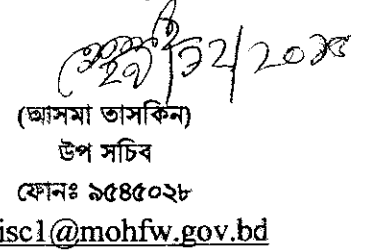 (আসমা তাসকিন)
উপ সচিব
ফোনঃ ৯৫৪৫০২৮
isc1@mohfw.gov.bd